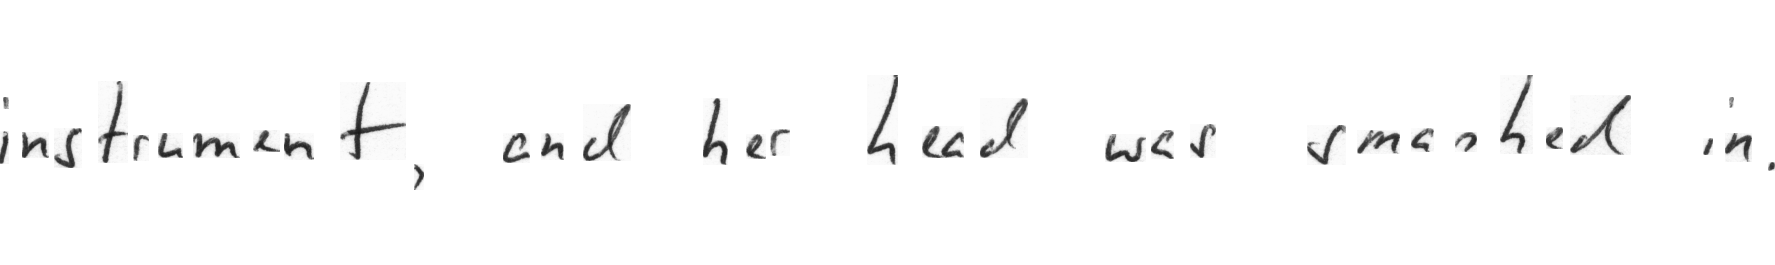 instrument, and her head was smashed in.